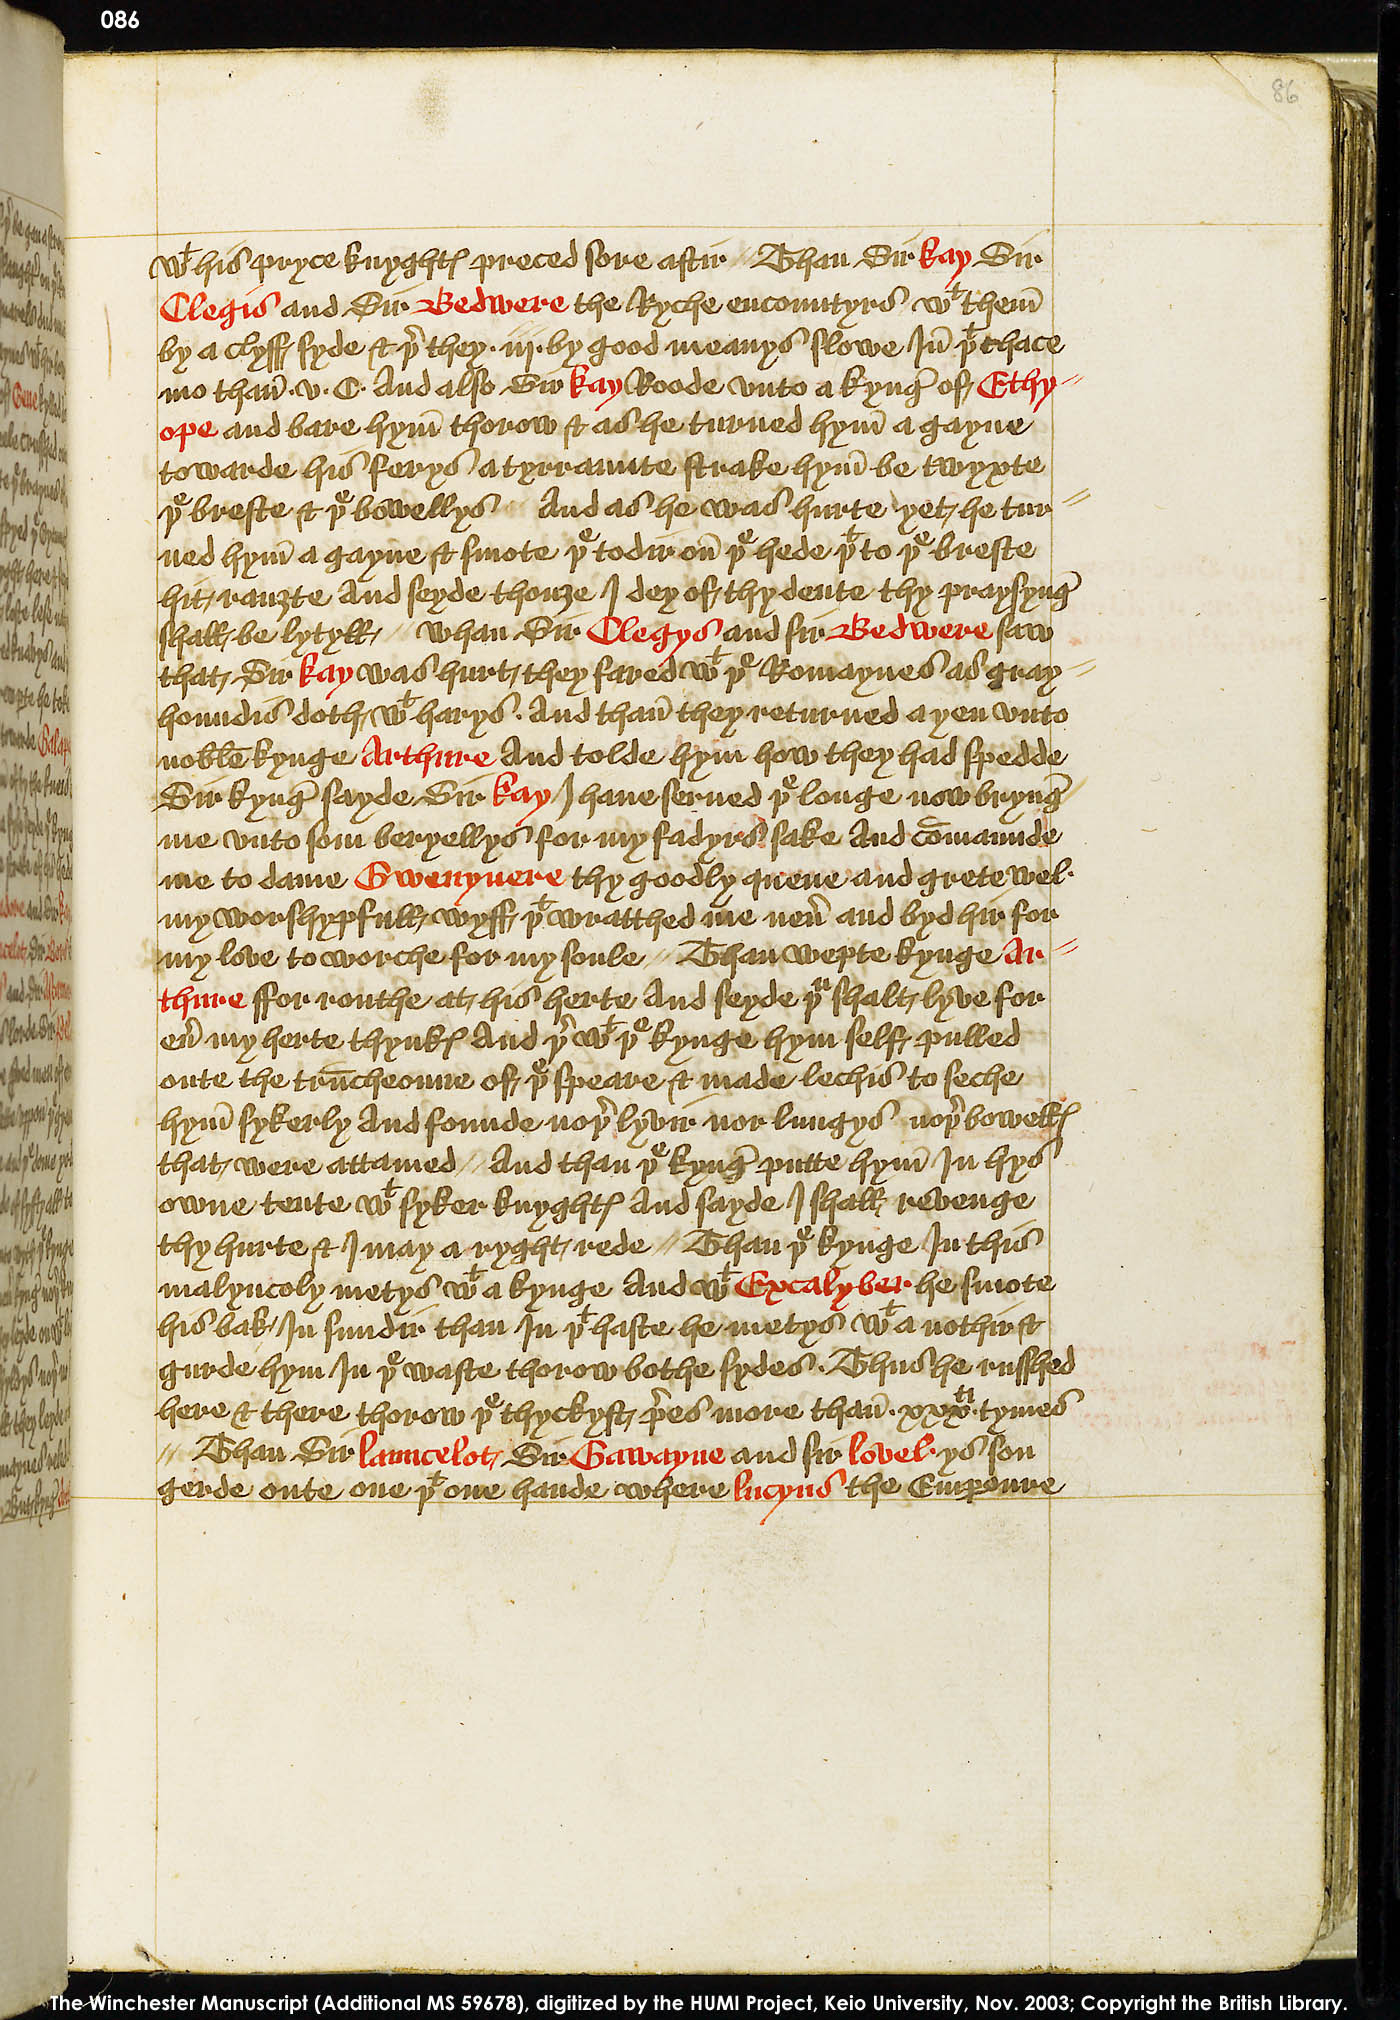 086
86
wᵗ his pryce knyghtꝭ preced sore aftir // Than Sir kay Sir
Clegis and Sir Bedwere the Ryche encountyrs wᵗ them̄
by a clyff syde & þ̄e they .iij. by good meanys slowe In̄ þᵗ chace
mo than̄ .v. C. And also Sir kay Roode vnto a kynḡ of Ethy//
ope and bare hym̄ thorow & as he turned hym̄ a gayne
towarde his ferys a tyrraunte strake hym̄ be twyxte
þᵉ breste & þᵉ bowellys And as he was hurte yet he tur//
ned hym̄ a gayne & smote þᵉ todir on̄ þᵉ hede þᵗ to þᵉ breste
hit rauȝte And seyde thouȝe I dey of thy dente thy praysynḡ
shall be lytyll // Whan Sir Clegys and sir Bedwere saw
that Sir kay was hurt they fared wᵗ þᵉ Romaynes as gray//
houndis doth wᵗ harys. And than̄ they returned a yen vnto
noble kynge Arthure And tolde hym how they had spedde
Sir kynḡ sayde Sir kay I haue serued þᵉ longe now brynḡ
me vnto som beryellys for my fadyrs sake And cōmaunde
me to dame Gwenyuere thy goodly quene and grete wel
my worshypfull wyff þᵗ wratthed me neū and byd hir for
my love to worche for my soule // Than wepte kynge Ar//
thure ffor routhe at his herte And seyde þᵘ shalt lyve for
eū my herte thynkꝭ And þ̄e wᵗ þᵉ kynge hym self pulled
oute the trūcheoune of þᵉ speare & made lechis to seche
hym̄ sykerly And founde noþ̄ lyvir nor lungys noþ̄ bowellꝭ
that were attamed // And than þᵉ kynḡ putte hym̄ In hys
owne tente wᵗ syker knyghtꝭ And sayde I shall revenge
thy hurte & I may a ryght rede // Than þᵉ kynge In this
malyncoly metys wᵗ a kynge And wᵗ Excalyber he smote
his bak In sundir than In þᵗ haste he metys wᵗ a nothir &
gurde hym In þᵉ waste thorow bothe sydes. Thus he russhed
here & there thorow þᵉ thyckyst p̄es more than̄ .xxxᵗⁱ. tymes
// Than Sir launcelot, Sir Gawayne and sir lovel ys son
gerde oute one þᵗ one hande where lucyus the Emp̄oure
The Winchester Manuscript (Additional MS 59678), digitized by the HUMI Project, Keio University, Nov. 2003; Copyright the British Library.